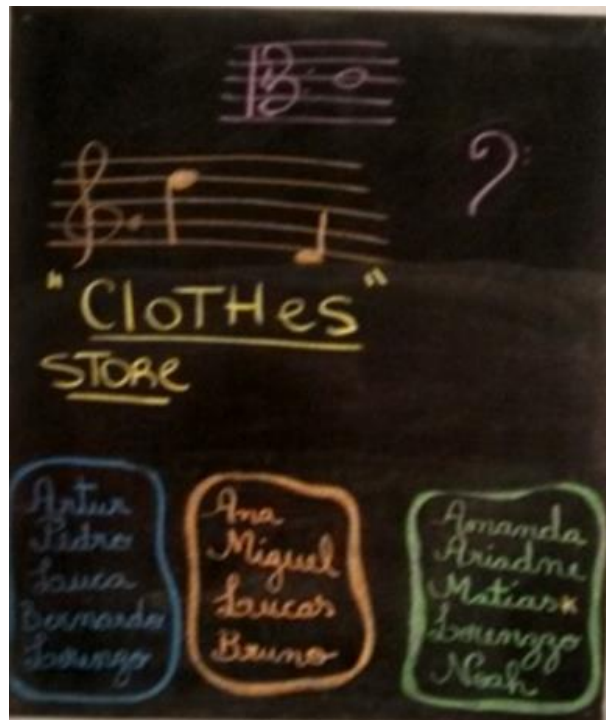 "CloTHes"
STORe
Artur
Pedro
Luca
Bernardo
Lorenzo
Ana
Miguel
Lucas
Bruno
Amanda
Ariadne
Matias
Lorenzzo
Noah